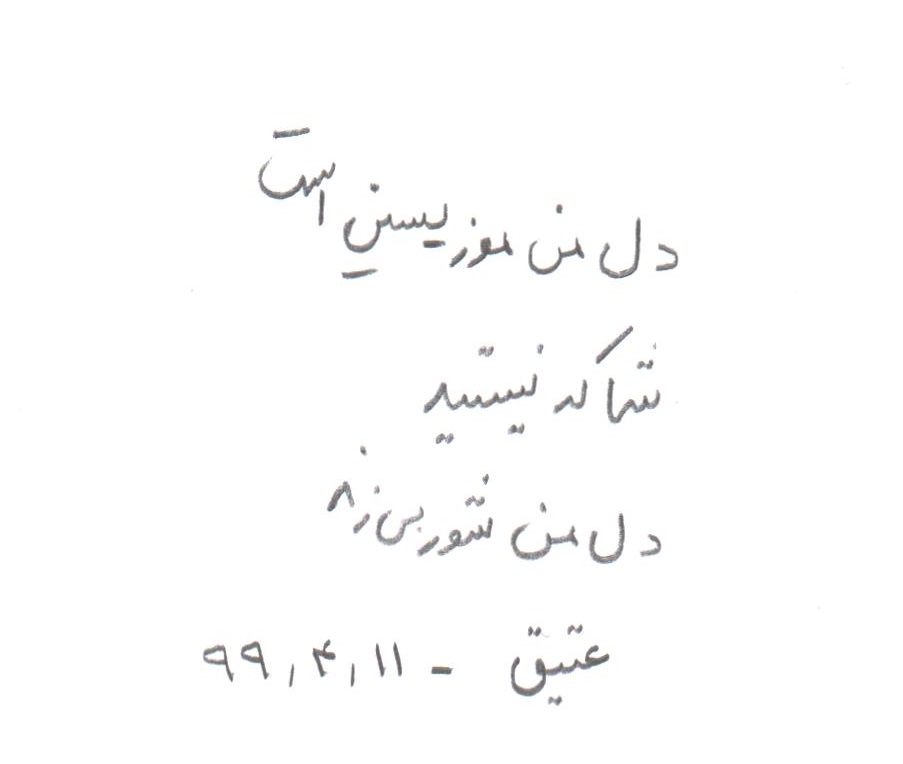 دل من موزیسین است
شما که نیستید
دل من شور می زند
عتیق - ۹۹٫۴٫۱۱